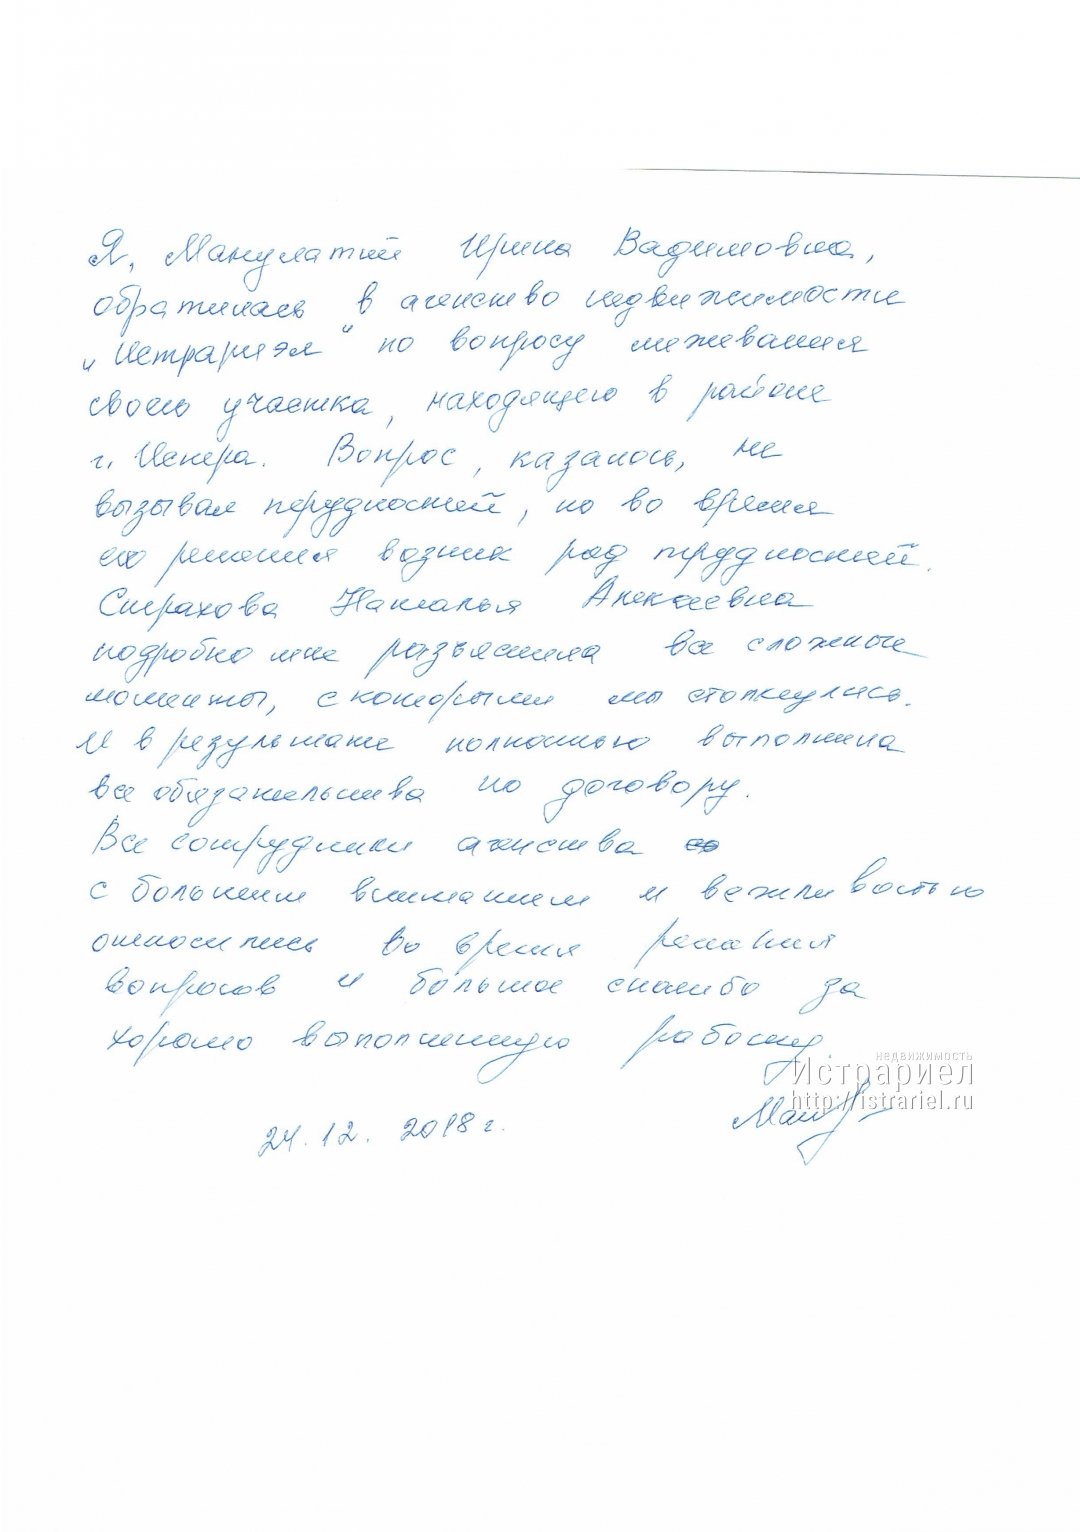 Я, Манулатий Ирина Вадимовна,
обратилась в агенство недвижимости
„Истрариэл“ по вопросу межевания
своего участка, находящего в районе
г. Истра. Вопрос, казалось, не
вызывал трудностей, но во время
его решения возник ряд трудностей.
Страхова Наталья Алексеевна
подробно мне разъяснила все сложные
моменты, с которыми мы столкнулись.
И в результате полностью выполнила
все обязательства по договору.
Все сотрудники агенства
с большим вниманием и вежливостью
относились во время решения
вопросов и большое спасибо за
хорошо выполненную работу.
недвижимость
Истрариел
http://istrariel.ru
24.12.2018 г.